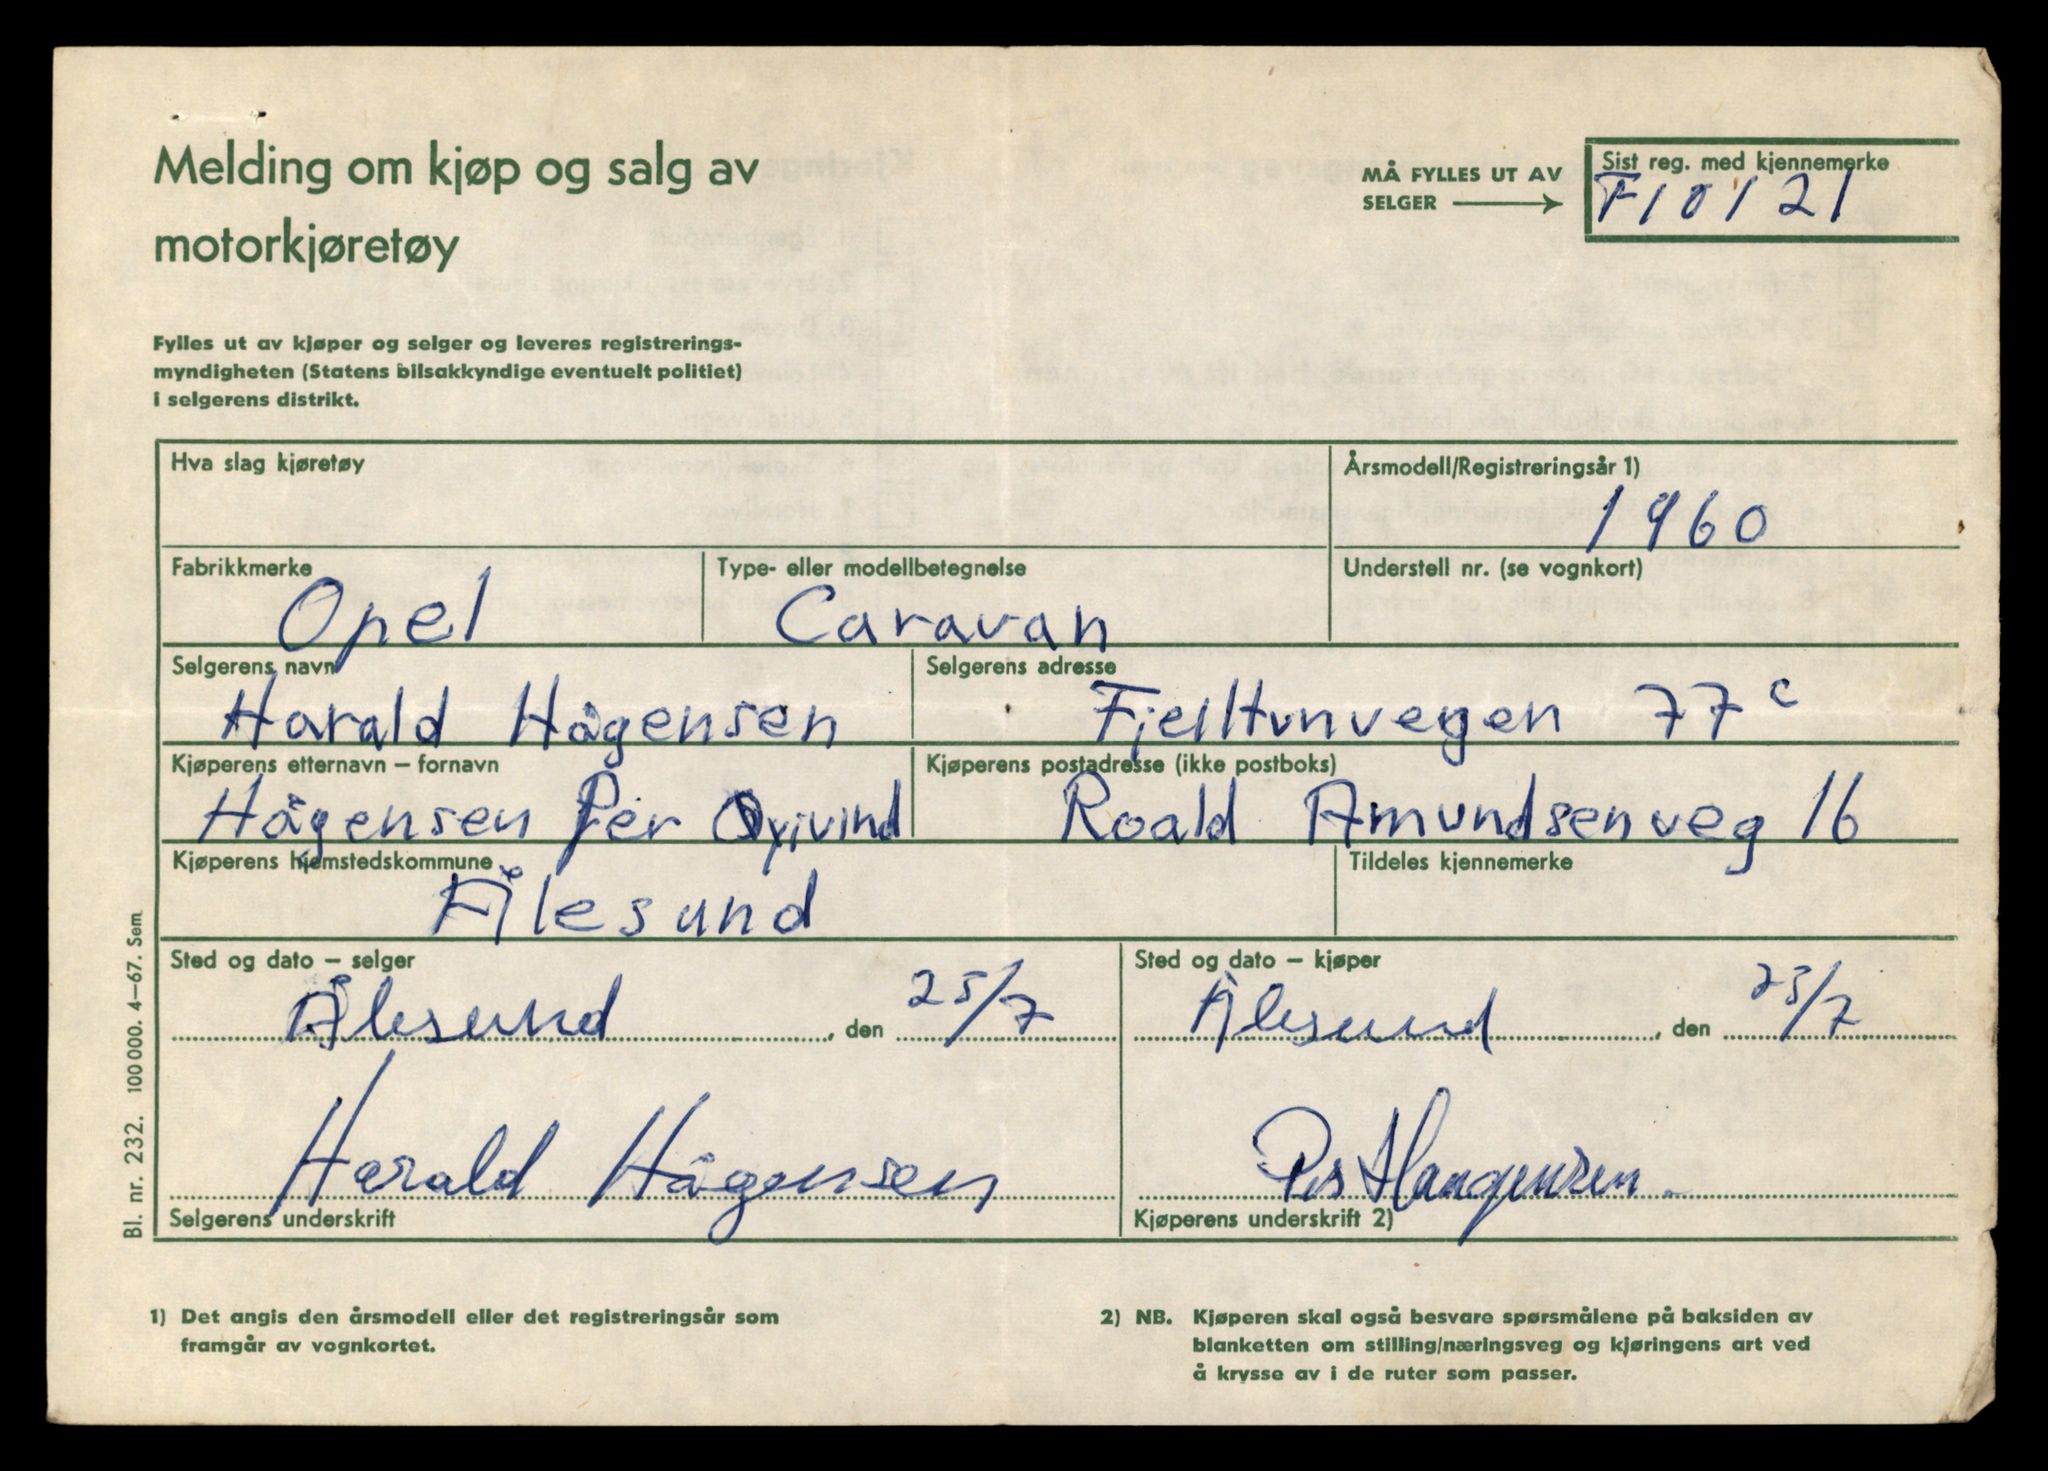 Melding om kjøp og salg av
motorkjøretøy
MÅ FYLLES UT AV
SELGER
Sist reg. med kjennemerke
F10121
Fylles ut av kjøper og selger og leveres registrerings-
myndigheten (Statens bilsakkyndige eventuelt politiet)
i selgerens distrikt.
Hva slag kjøretøy
Årsmodell/Registreringsår 1)
1960
Fabrikkmerke
Opel
Type- eller modellbetegnelse
Caravan
Understell nr. (se vognkort)
Selgerens navn
Harald Hågensen
Selgerens adresse
Fjelltunvegen 77c
Kjøperens etternavn – fornavn
Hågensen Per Oyjvind
Kjøperens postadresse (ikke postboks)
Roald Amundsenveg 16
Kjøperens hjemstedskommune
Ålesund
Tildeles kjennemerke
Sted og dato – selger
Ålesund, den 25/7
Sted og dato – kjøper
Ålesund, den 25/7
Harald Hågensen
Selgerens underskrift
Per Haagensen
Kjøperens underskrift 2)
Bl. nr. 232. 100 000. 4–67. Sem.
1) Det angis den årsmodell eller det registreringsår som
framgår av vognkortet.
2) NB. Kjøperen skal også besvare spørsmålene på baksiden av
blanketten om stilling/næringsveg og kjøringens art ved
å krysse av i de ruter som passer.